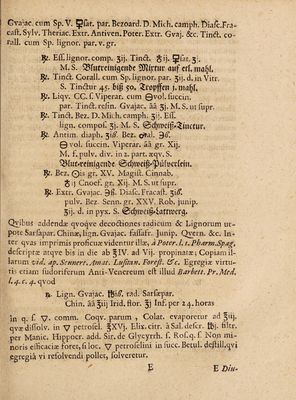 Gvajac. cum Sp. V. ☿ſat. par. Bezoard. D. Mich. camph. Diaſc. Fra-
caſt. Sylv. Theriac. Extr. Antiven. Poter. Extr. Gvaj. &c. Tinct. co-
rall. cum Sp. lignor. par. v. gr.
℞. Eſſ. lignor. comp. ʒij. Tinct. ♁ij. ☿ſat. ʒi.
M. S. Blutreinigende Mixtur auf etl. mahl.
℞. Tinct. Corall. cum Sp. lignor. par. ʒij. d. in Vitr.
S. Tinctur 45. biß 50. Tropffen 3. mahl.
℞. Liqv. CC. ſ. Viperar. cum ⊖vol. ſuccin.
par. Tinct. reſin. Gvajac. āā ʒj. M. S. ut ſupr.
℞. Tinct. Bez. D Mich. camph. ʒij. Eſſ.
lign. compoſ. ʒj. M. S. Schweiß-Tinctur.
℞. Antim. diaph. ʒiß. Bez. ol. ℈ß.
⊖ vol. ſuccin. Viperar. āā gr. Xij.
M. f. pulv. div. in 2. part. æqv. S.
Blut-reinigende Schweiß-Pülverlein.
℞. Bez. is gr. XV. Magiſt. Cinnab.
♁ij Cnoef. gr. Xij. M. S. ut ſupr.
℞. Extr. Gvajac. ℈ß. Diaſc. Fracaſt. ʒiß.
pulv. Bez. Senn. gr. XXV. Rob. junip.
ʒij. d. in pyx. S. Schweiß-Lattwerg.
Qvibus addendæ qvoqve decoctiones radicum & Lignorum ut-
pote Sarſapar. Chinæ, lign. Gvajac. ſaſſafr. Junip. Qvern. &c. In-
ter qvas imprimis proficuæ videntur illæ, à Poter. l. 1. Pharm. Spag,
deſcriptæ atqve bis in die ab ʒIV. ad Vij. propinatæ; Copiam il-
larum vid. ap. Sennert, Amat. Luſitan. Foreſt. &c. Egregiæ virtu-
tis etiam ſudoriferum Anti-Venereum eſt illud Barbett. Pr. Med.
l. 4. c. 4. qvod
℞. Lign. Gvajac. ℔ß. rad. Sarſæpar.
Chin. āā ʒiij Irid. flor. ʒj Inf. per 24. horas
in q. ſ. ▽. comm. Coqv. parum, Colat. evaporetur ad ʒiij.
qvæ diſſolv. in ▽ petroſel. ʒXVj. Elix. citr. à Sal. deſcr. filtr.
per Manic. Hippocr. add. Sir. de Glycyrrh. ſ. Roſ. q. ſ. Non mi-
noris efficaciæ foret, ſi loc. ▽ petroſelini in ſucc. Betul. deſtill. qvi
egregiâ vi reſolvendi pollet, ſolveretur.
E
E Diu-